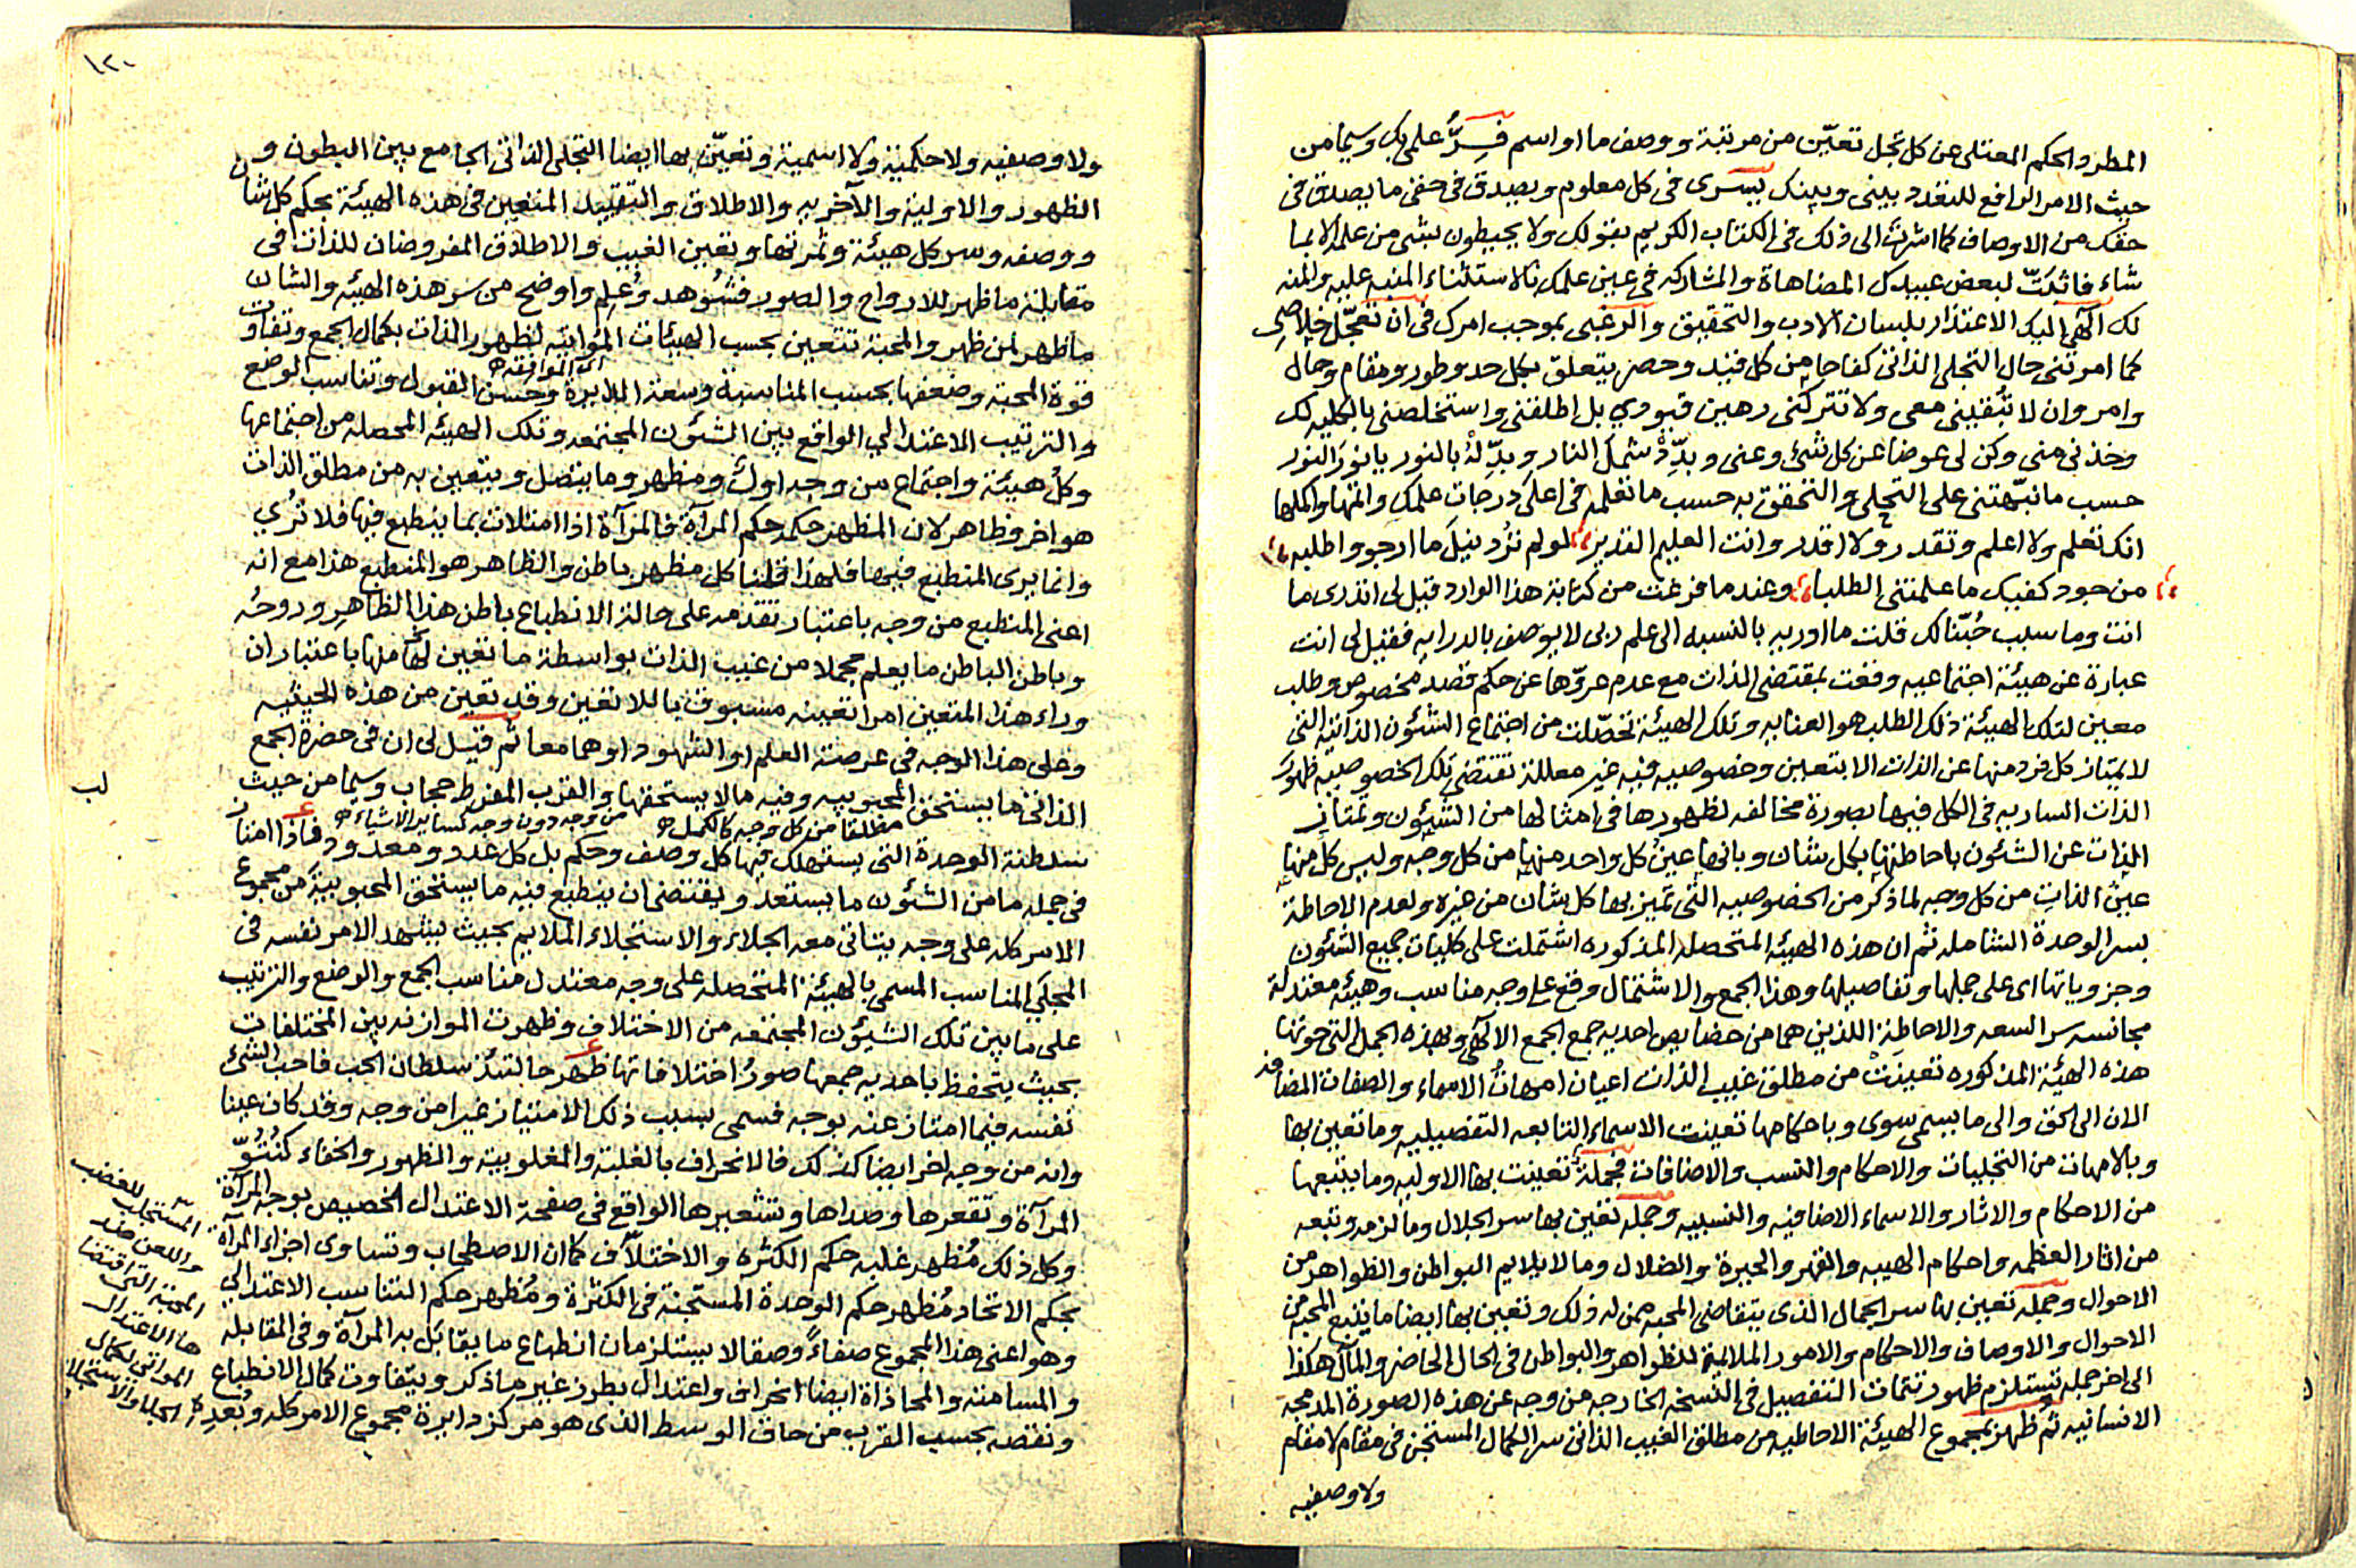 المطرد الحكم المعتلى عن كل تجل تعيّن من مرتبة ووصف ما او اسم فسرُّ علمى بك وسيما من
حيث الامر الرافع للتعدد بينى وبينك يسرى فى كل معلوم ويصدق فى حقى ما يصدق فى
حقك من الاوصاف كما اشرت الى ذلك فى الكتاب الكريم بقولك ولا يحيطون بشى من علمه الا بما
شاء فاثبتّ لبعض عبيدك المضاهاة والمشاركه فى عين علمك بالاستثناء المنبه عليه والمنه
لك الهى اليك الاعتذار بلسان الادب والتحقيق والرغبى بموجب امرك فى ان تعجّل خلاصى
كما امرتنى حال التجلى الذاتى كفاحا من كل قيد وحصر يتعلق بكل حد وطور ومقام وحال
وامر وان لا تُبقينى معى ولا تتركنى رهين قيودي بل اطلقنى واستخلصنى بالكليه لك
وخذنى منى وكن لى عوضا عن كل شئ وعنى وبدِّدْ شمل النار وبدِّلهُ بالنور يا نور النور
حسب ما نبّهتنى على التحلى والتحقق به حسب ما تعلمه فى اعلى درجات علمك واتمها واكملها
انك تعلم ولا اعلم وتقدر ولا اقدر وانت العليم القدير لو لم تُرد نيل ما ارجو واطلبه
من جود كفيك ما علمتنى الطلبا وعندما فرغت من كتابة هذا الوارد قيل لى اتدرى ما
انت وما سبب حُبّنا لك قلت ما ادريه بالنسبه الى علم ربى لا يوصف بالدرايه فقيل لى انت
عبارة عن هيئة اجتماعيه وقعت بمقتضى الذات مع عدم عروّها عن حكم قصد مخصوص وطلب
معين لتلك الهيئة ذلك الطلب هو العنايه وتلك الهيئة تحصّلت من اجتماع الشئون الذاتيه التى
لا يمتاز كل فرد منها عن الذات الا بتعين وخصوصيه فيه غير معللة تقتضى تلك الخصوصيه ظهور
الذات الساريه فى الكل فيها بصورة مخالفه لظهورها فى امثالها من الشئون وتمتاز
الذات عن الشئون باحاطتها بكل شان وبانها عينُ كل واحد منها من كل وجه وليس كل منها
عين الذات من كل وجه لما ذكر من الخصوصيه التى تميز بها كل شان من غيره ولعدم الاحاطة
بسر الوحدة الشامله ثم ان هذه الهيئه المتحصله المذكوره اشتملت على كليات جميع الشئون
وجزوياتها اى على جملها وتفاصيلها وهذا الجمع والاشتمال وقع على وجه مناسب وهيئه معتدلة
مجانسه سر السعه والاحاطة اللذين هما من خصايص احديه جمع الجمع الالهى وبهذه الجمل التى حوتها
هذه الهيئة المذكوره تعينت من مطلق غيب الذات اعيان امهات الاسماء والصفات المضافه
الان الى الحق والى ما يسمى سوى وباحكامها تعينت الاسماء التابعه التفصيلييه وما تعين بها
وبالامهات من التجليات والاحكام والنسب والاضافات فجملة تعينت بها الاوليه وما يتبعها
من الاحكام والاثار والاسماء الاضافيه والنسبيه وجمله تعين بها سر الجلال وما لزمه وتبعه
من اثار العظمه واحكام الهيبه والقهر والحيرة والضلال وما لا يلايم البواطن والظواهر من
الاحوال وجمله تعين بها سر الجمال الذى يتقاضى المحبه ممن له ذلك وتعين بها ايضا ما يتبع المحبه من
الاحوال والاوصاف والاحكام والامور الملايمة للظواهر والبواطن فى الحال الحاضر والمآل هكذا
الى اخر جمله تستلزم ظهور تتمات التفصيل فى النسخه الخارجه من وجه عن هذه الصورة المدمجه
الانسانيه ثم ظهر بمجموع الهيئة الاحاطيه من مطلق الغيب الذاتى سر الكمال المستجن فى مقام لا مقام
ولا وصفيه
١٢٠
ولا وصفيه ولا حكمية ولا اسمية وتعيّن بها ايضا التجلى الذاتى الجامع بين البطون و
الظهور والاولية والآخريه والاطلاق والتقييد المتعين فى هذه الهيئة بحكم كل شان
ووصف وسر كل هيئة وثمرتها وتعين الغيب والاطلاق المفروضان للذات فى
مقابلة ما ظهر للارواح والصور فشُوهد وعُلم واوضح من سر هذه الهيئه والشان
ما ظهر لمن ظهر والمحبة تتعين بحسب الهيئات المؤاتيه لظهور الذات بكمال الجمع وتفاوت
اى الموافقه
قوة المحبه وضعفها بحسب المناسبة وسعة الدايرة وحسن القبول وتناسب الوضع
والترتيب الاعتدالي الواقع بين الشئون المجتمعه وتلك الهيئه المحصله من اجتماعها
وكل هيئة واجتماع من وجه اول ومظهر وما يتصل ويتعين به من مطلق الذات
هو اخر وظاهر لان المظهر حكمه حكم المرآة فالمرآة اذا امتلات بما ينطبع فيها فلا تُرى
وانما يرى المنطبع فيها فلهذا قلنا كل مظهر باطن والظاهر هو المنطبع هذا مع انه
اعنى المنطبع من وجه باعتبار تقدمه على حالة الانطباع باطن هذا الظاهر وروحُه
وباطن الباطن ما يعلم مجملا من غيب الذات بواسطة ما تعين لها منها باعتبار ان
وراء هذا المتعين امرا تعينه مسبوق باللاتعين وقد تعين من هذه الحيثيه
وعلى هذا الوجه فى عرصة العلم او الشهود او هما معا ثم قيل لى ان فى حضرة الجمع
الذاتى ما يستحق المحبوبيه وفيه ما لا يستحقها والقرب المفرط حجاب وسيما من حيث
لب
مطلقا من كل وجه كالكمل
من وجه دون وجه كساير الاشياء
سلطنة الوحدة التى يستهلك فيها كل وصف وحكم بل كل عدد ومعدود فاذا امتاز
فى جمله ما من الشئون ما يستعد ويقتضى ان ينطبع فيه ما يستحق المحبوبيه من مجموع
الامر كله على وجه يتاتى معه الجلاء والاستجلاء الملايم بحيث يشهد الامر نفسه فى
المجلى المناسب المسمى بالهيئة المتحصله على وجه معتدل مناسب الجمع والوضع والترتيب
على ما بين تلك الشئون المجتمعه من الاختلاف وظهرت الموازنه بين المختلفات
بحيث يتحفظ باحديه جمعها صورُ اختلافاتها ظهر حالتئذ سلطان الحب فاحب الشئ
نفسه فيما امتاز عنه بوجه فسمى بسبب ذلك الامتياز غيرا من وجه وقد كان عينا
وانه من وجه اخر ايضا كذلك فالانحراف بالغلبة والمغلوبية والظهور والخفاء كنُتُوّ
المرآة وتقعرها وصداها وتشعيرها الواقع فى صفحة الاعتدال الخصيص بوجه المرآة
وكل ذلك مُظهر غلبه حكم الكثره والاختلاف كما ان الاصطحاب وتساوى اجزاء المرآة
بحكم الاتحاد مُظهر حكم الوحدة المستجنة فى الكثرة ومُظهر حكم التناسب الاعتدالي
وهو اعنى هذا المجموع صفاءً وصقالا يستلزمان انطباع ما يقابل به المرآة وفى المقابله
والمسامتة والمحاذاة ايضا انحراف واعتدال بطرز غير ما ذكر ويتفاوت كمال الانطباع
ونقصه بحسب القرب من حاق الوسط الذى هو مركز دايرة مجموع الامر كله وبُعدِه
المستجلب للغضب
واللعن ضد
المحبة التى اقتضا
ها الاعتدال
المراتى لكمال
الجلاء والاستجلاء